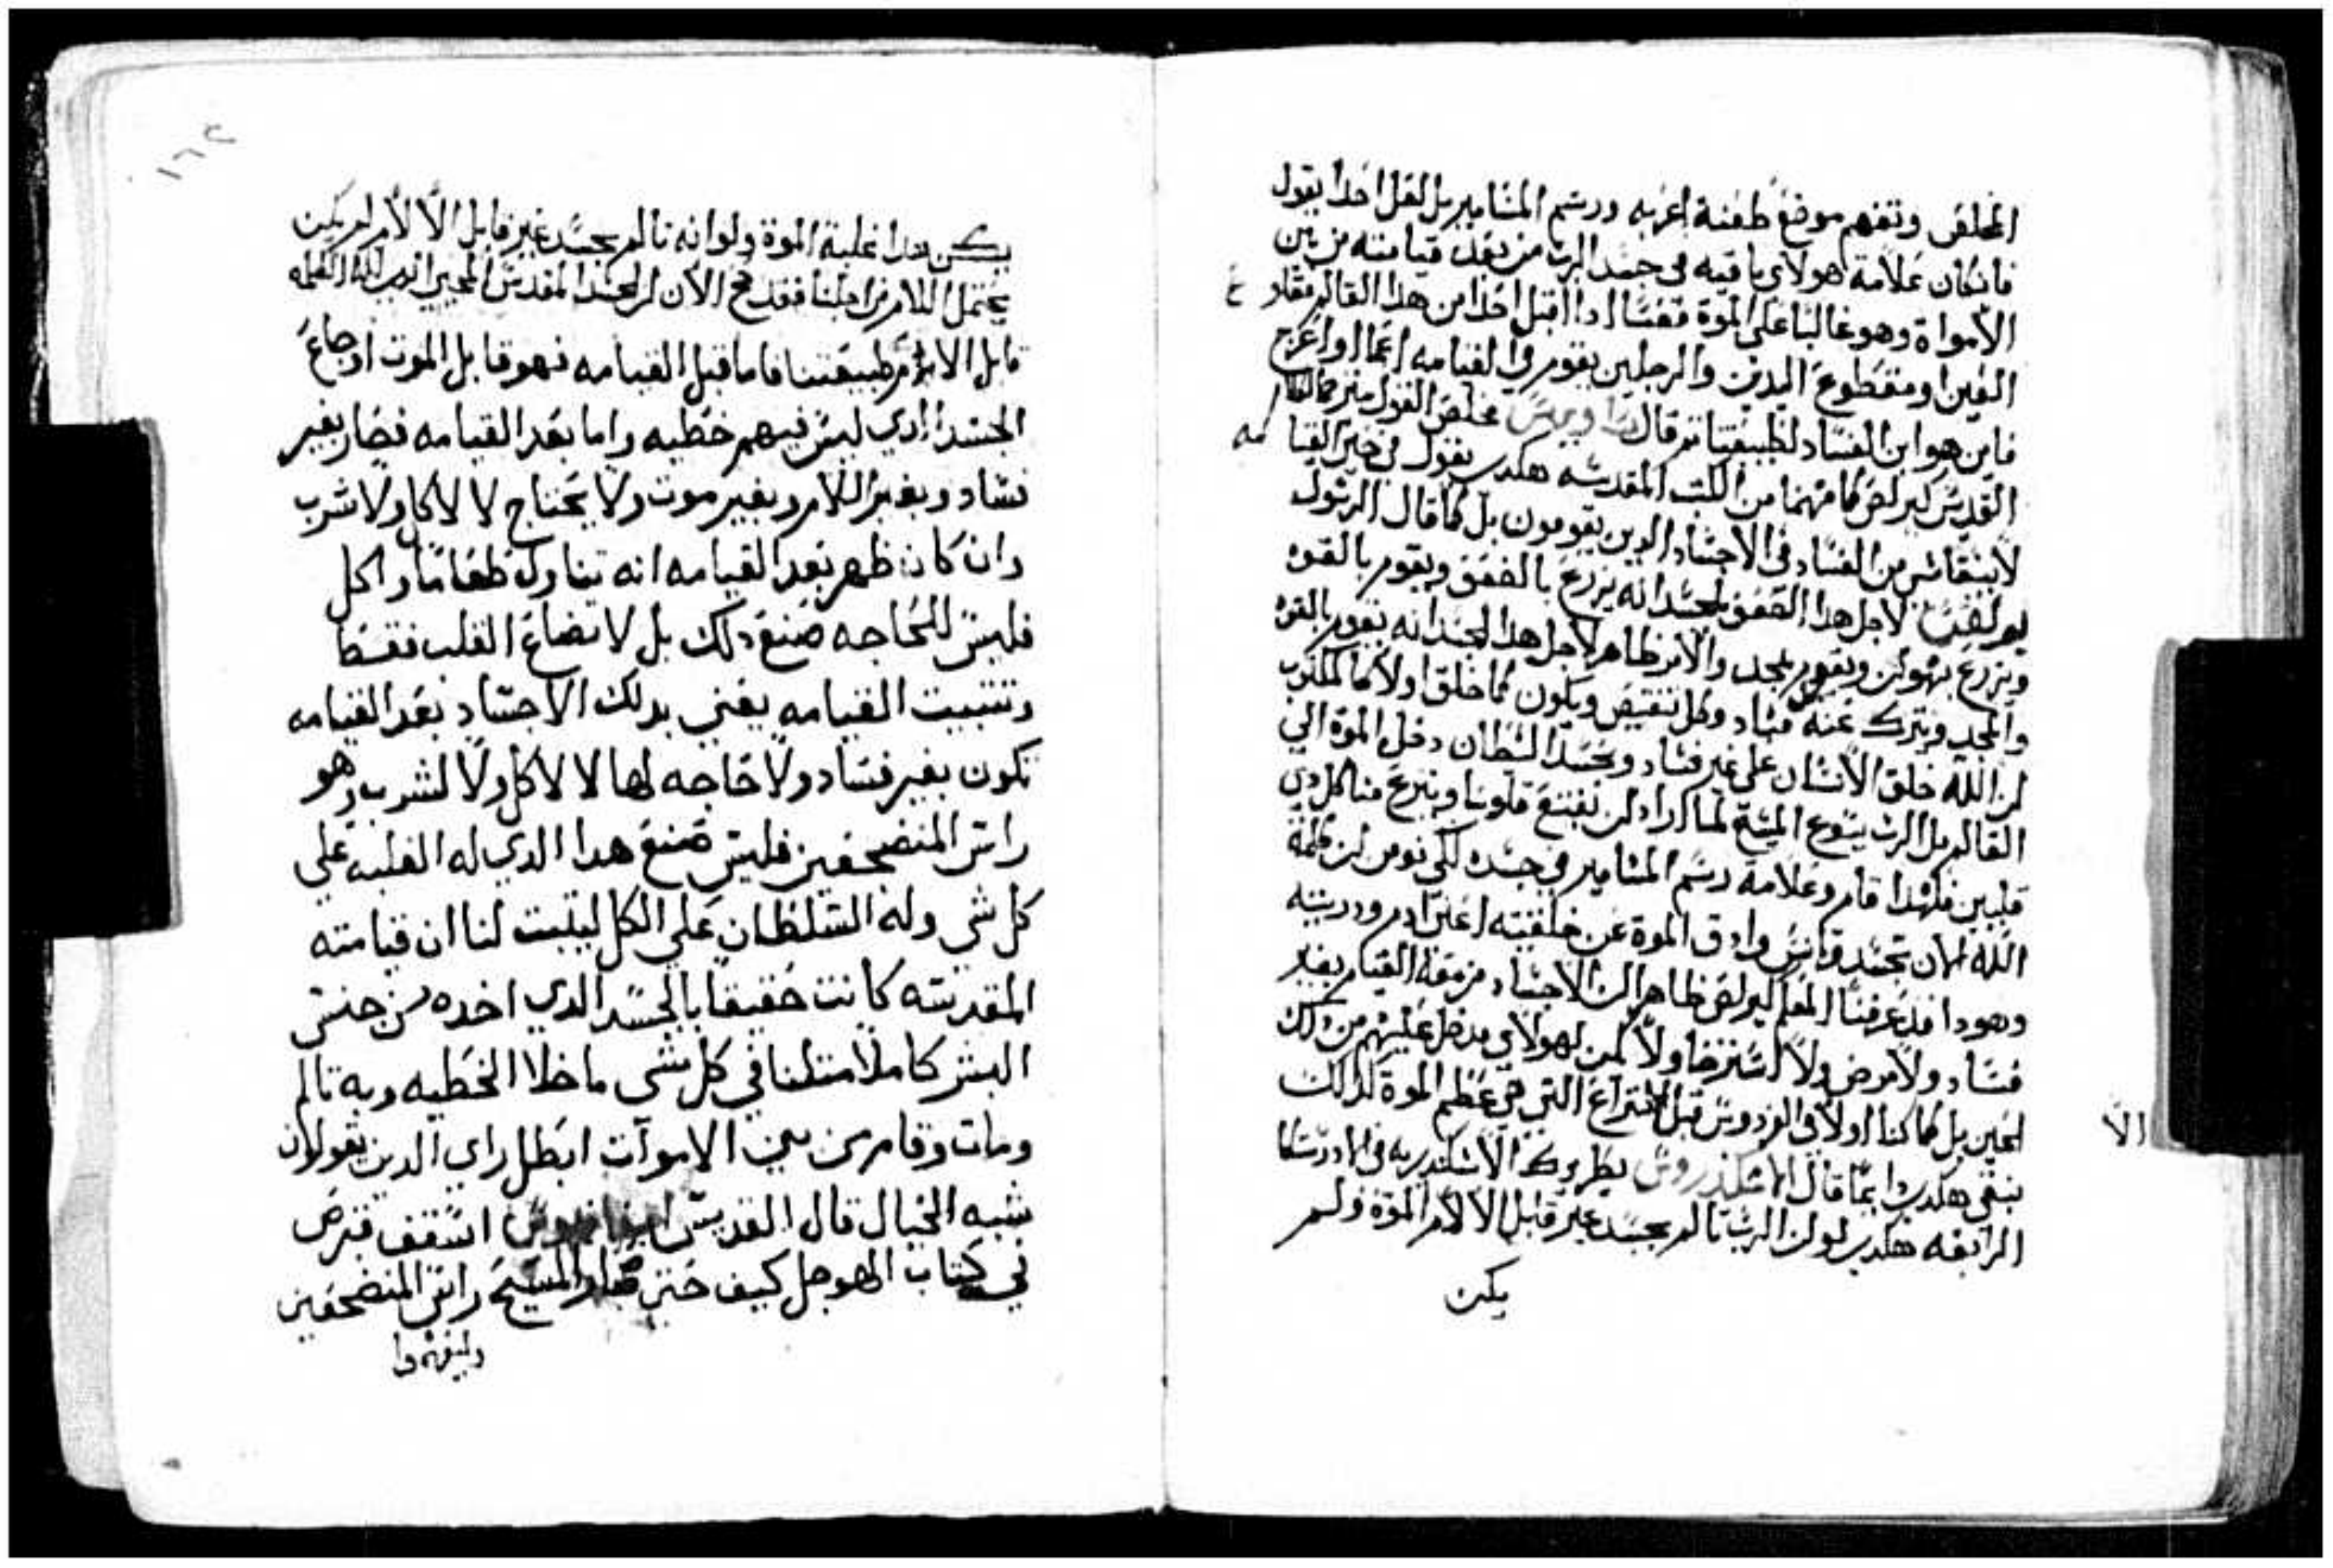 المخلص وتفهم موضع طعنة الحربه ورسم المسامير بل لعل احدا يقول
فان كان علامة هولاي باقيه في جسد الرب من بعد قيامته من بين
الأمواة وهو غالبا على الموة فعسا اذا اقبل احدا من هذا العالم مقلوع
العين او مقطوع اليدين والرجلين يقوم في القيامه اعما او اعرج
فاين هو ابن الفساد لطبيعتنا ثم قال مخلص القول
القديس كيرلص كما فهمنا من الكتب المقدسه هكدى يقول في حين القيامه
لا يبقا شي من الفساد في الاجساد الدين يقومون بل كما قال الرسول
لاجل هدا الضعف الجسد انه يزرع بالضعف ويقوم بالقوه
ويزرع بهوان ويقوم بمجد والأمر ظاهر لاجل هدا الجسد انه يقوم بالقوه
والمجد ويترك عنه كل فساد وكل تنقيص ويكون كما خلق اولا كالمكتوب
ان الله خلق الأنسان على غير فساد وبحسد الشيطان دخل الموة الى
العالم بل الرب يسوع المسيح لما اراد ان يقنع قلوبنا وينزع منا كل دي
قلبين فلهدا قام وعلامة رسم المسامير في جسده لكي نومن ان كلمة
الله لمان تجسد وتانس واذق الموة عن خلقته اعني ادم ودريته
وهودا قد عرفنا المعلم كيرلص ظاهرا ان الاجساد مزمعة القيام بغير
فساد ولا مرض ولا استرخا ولا لمن لهولاي مدخل عليهم من دلك
الحين بل كما كنا اولا في الفردوس قبل الانتزاع التي هي عظم الموة كدالك
نبقى هكدى وايضا قال الاسكندروس بطريرك الأسكندريه في الادرستكا
الرابعه هكدى لو ان الرب تالم بجسد غير قابل الالام الموة ولم
يكن
الا
١٦٤
يكن هدا غلبة الموة ولو انه تالم بجسد غير قابل الالام لم يكن
يحتمل الالام من اجلنا فقد صح الأن ان الجسد المقدس المحيي الدي لله الكلمه
قابل الالام من طبيعتنا فاما قبل القيامه فهو قابل الموت اوجاع
الجسد الدي ليس فيهم خطيه واما بعد القيامه فصار بغير
فساد وبغير اللام وبغير موت ولا يحتاج لا لاكل ولا شرب
وان كان ظهر بعد القيامه انه تناول طعاما واكل
فليس للحاجه صنع دلك بل لاتضاع القلب فقط
وتتبيت القيامه يعني بدلك الاجساد بعد القيامه
تكون بغير فساد ولا حاجه لها لا لاكل ولا لشرب وهو
راس المتضعين فليس صنع هدا الدي له الغلبه على
كل شي وله السلطان على الكل ليتبت لنا ان قيامته
المقدسه كانت حقيقا بالجسد الدي اخده من جنس
البشر كاملا متلنا في كل شي ما خلا الخطيه وبه تالم
ومات وقام من بين الامواة ابطل راي الدين يقولان
شبه الخيال قال القديس اسقف قبرص
في كتاب الهوجل كيف حتى صار المسيح راس المتضعين
وليفهموا